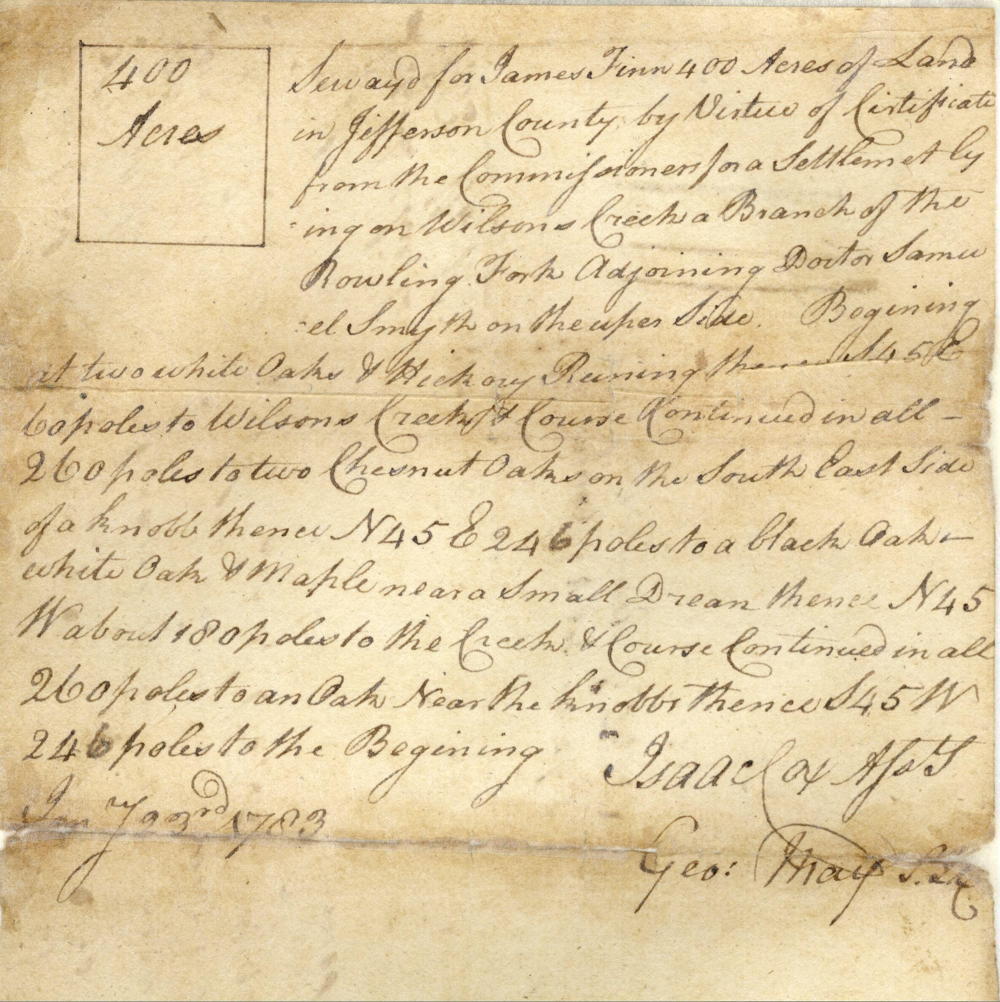 400
Acres
Servayd for James Finn 400 Acres of Land
in Jefferson County by Virtue of Certificate
from the Commissioners for a Settlemet ly
-ing on Wilsons Creek a Branch of the
Rowling Fork Adjoining Doctor Samu
-el Smyth on the uper Side. Begining
at two white Oaks & Hickory Runing thence S45E
60 poles to Wilsons Creek & Course Continued in all -
260 poles to two Chesnut Oaks on the South East Side
of a knobb thence N45 E 246 poles to a black Oak -
white Oak & Maple near a Small Drean thence N45
W about 180 poles to the Creek & Course Continued in all
260 poles to an Oak Near the knobbs thence S45 W
246 poles to the Begining
Isaac Cox AssT
1783
Geo: May